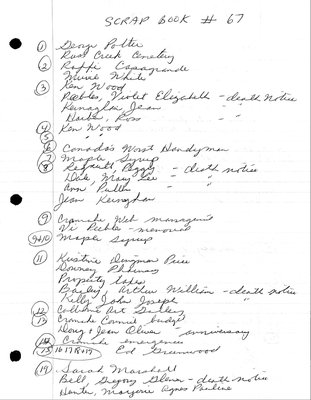 SCRAP BOOK # 67
① George Potter
Rush Creek Cemetery
② Raffi Casagrande
Murie White
③ Ken Wood
Peebles, Violet Elizabeth - death notice
Kernaghan Jean "
Ross - "
④ Ken Wood
⑤ " "
⑥ Canada's Worst Handyman
⑦ Maple Syrup
⑧ Peggy - death notice
Mary Lee - "
Ann - "
Jean Kernaghan
⑨ Cramahe Web manager
Vi Peebles - memorial
9+10 Maple Syrup
⑪ Kristine Dingman Price
Downey Pharmacy
Property taxes
Bailey, Arthur William - death notice
Kelly John Joseph "
⑫ Colborne Art Gallery
13 Cramahe Council budget
Doug + Jean Oliver - anniversary
Cramahe emergencies
15 16 17 18 Ed Greenwood
⑲ Sarah Marshall
Bell, Gregory Glenn - death notice
Hunter, Marjorie Agnes Pauline